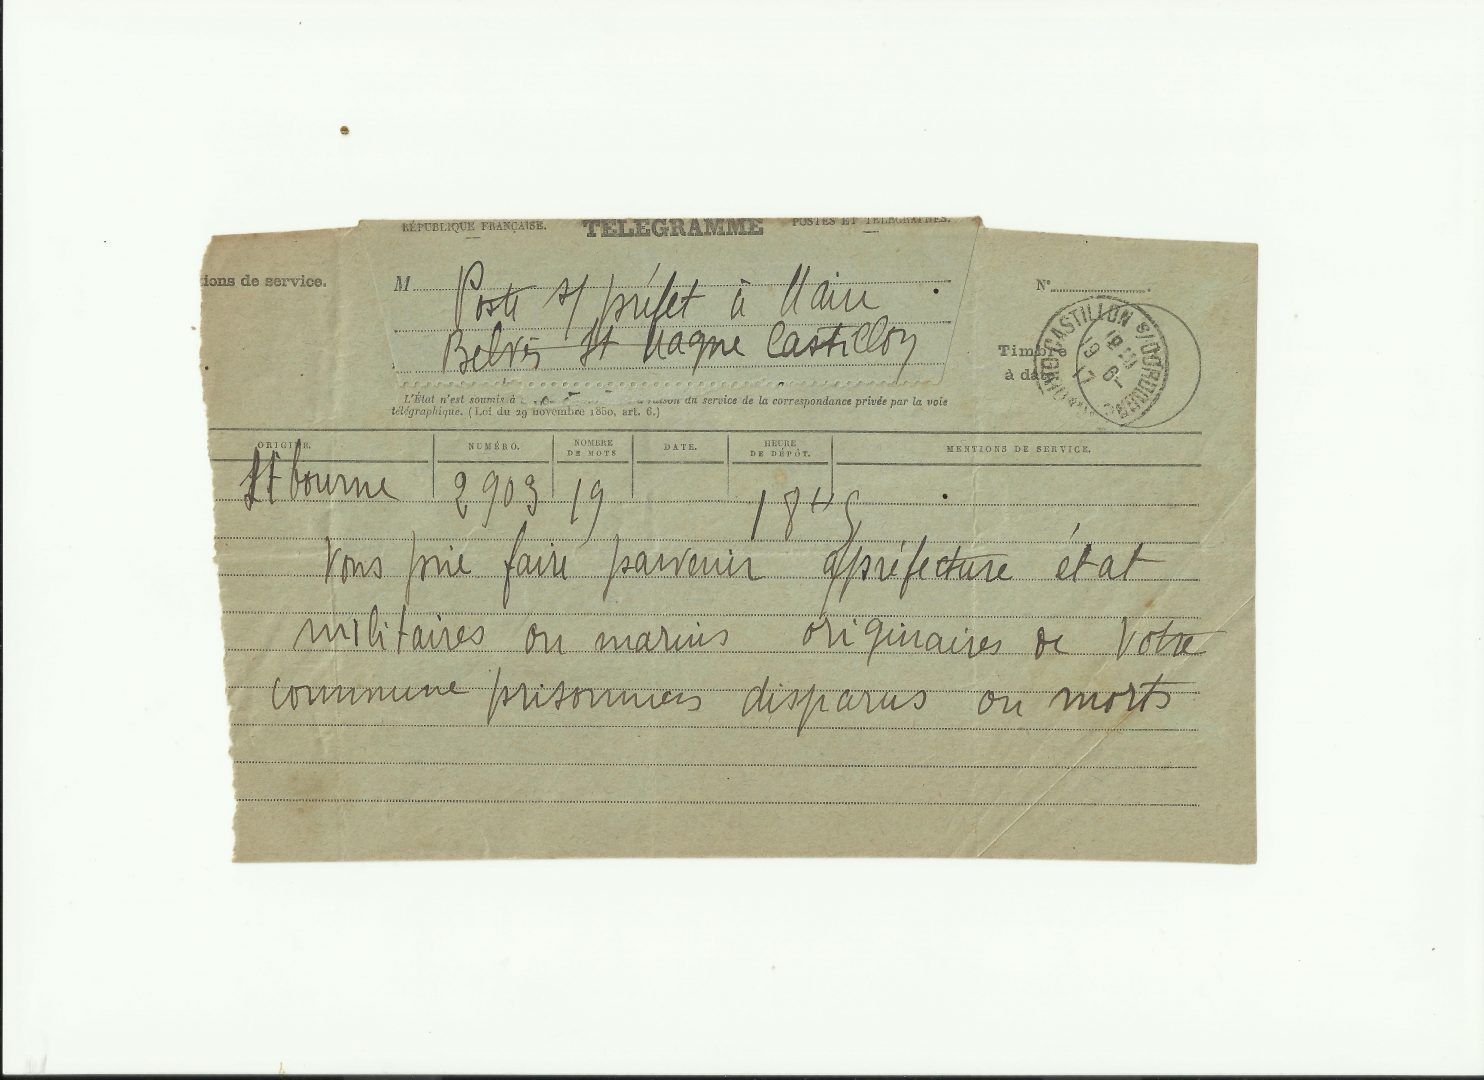 RÉPUBLIQUE FRANÇAISE. TÉLÉGRAMME POSTES ET TÉLÉGRAPHES.
ions de service.
M Poste s/ préfet à Maire
Belvès St Magne Castillon
N°
Timbre
à date
CASTILLON S/DORDOGNE
L'État n'est soumis à
du service de la correspondance privée par la voie
télégraphique. (Loi du 29 novembre 1850, art. 6.)
ORIGINE. NUMÉRO. NOMBRE DE MOTS DATE. HEURE DE DÉPÔT. MENTIONS DE SERVICE.
Libourne 2903 19 18 H 5
Vous prie faire parvenir s/préfecture état
militaires ou marins originaires de votre
commune prisonniers disparus ou morts